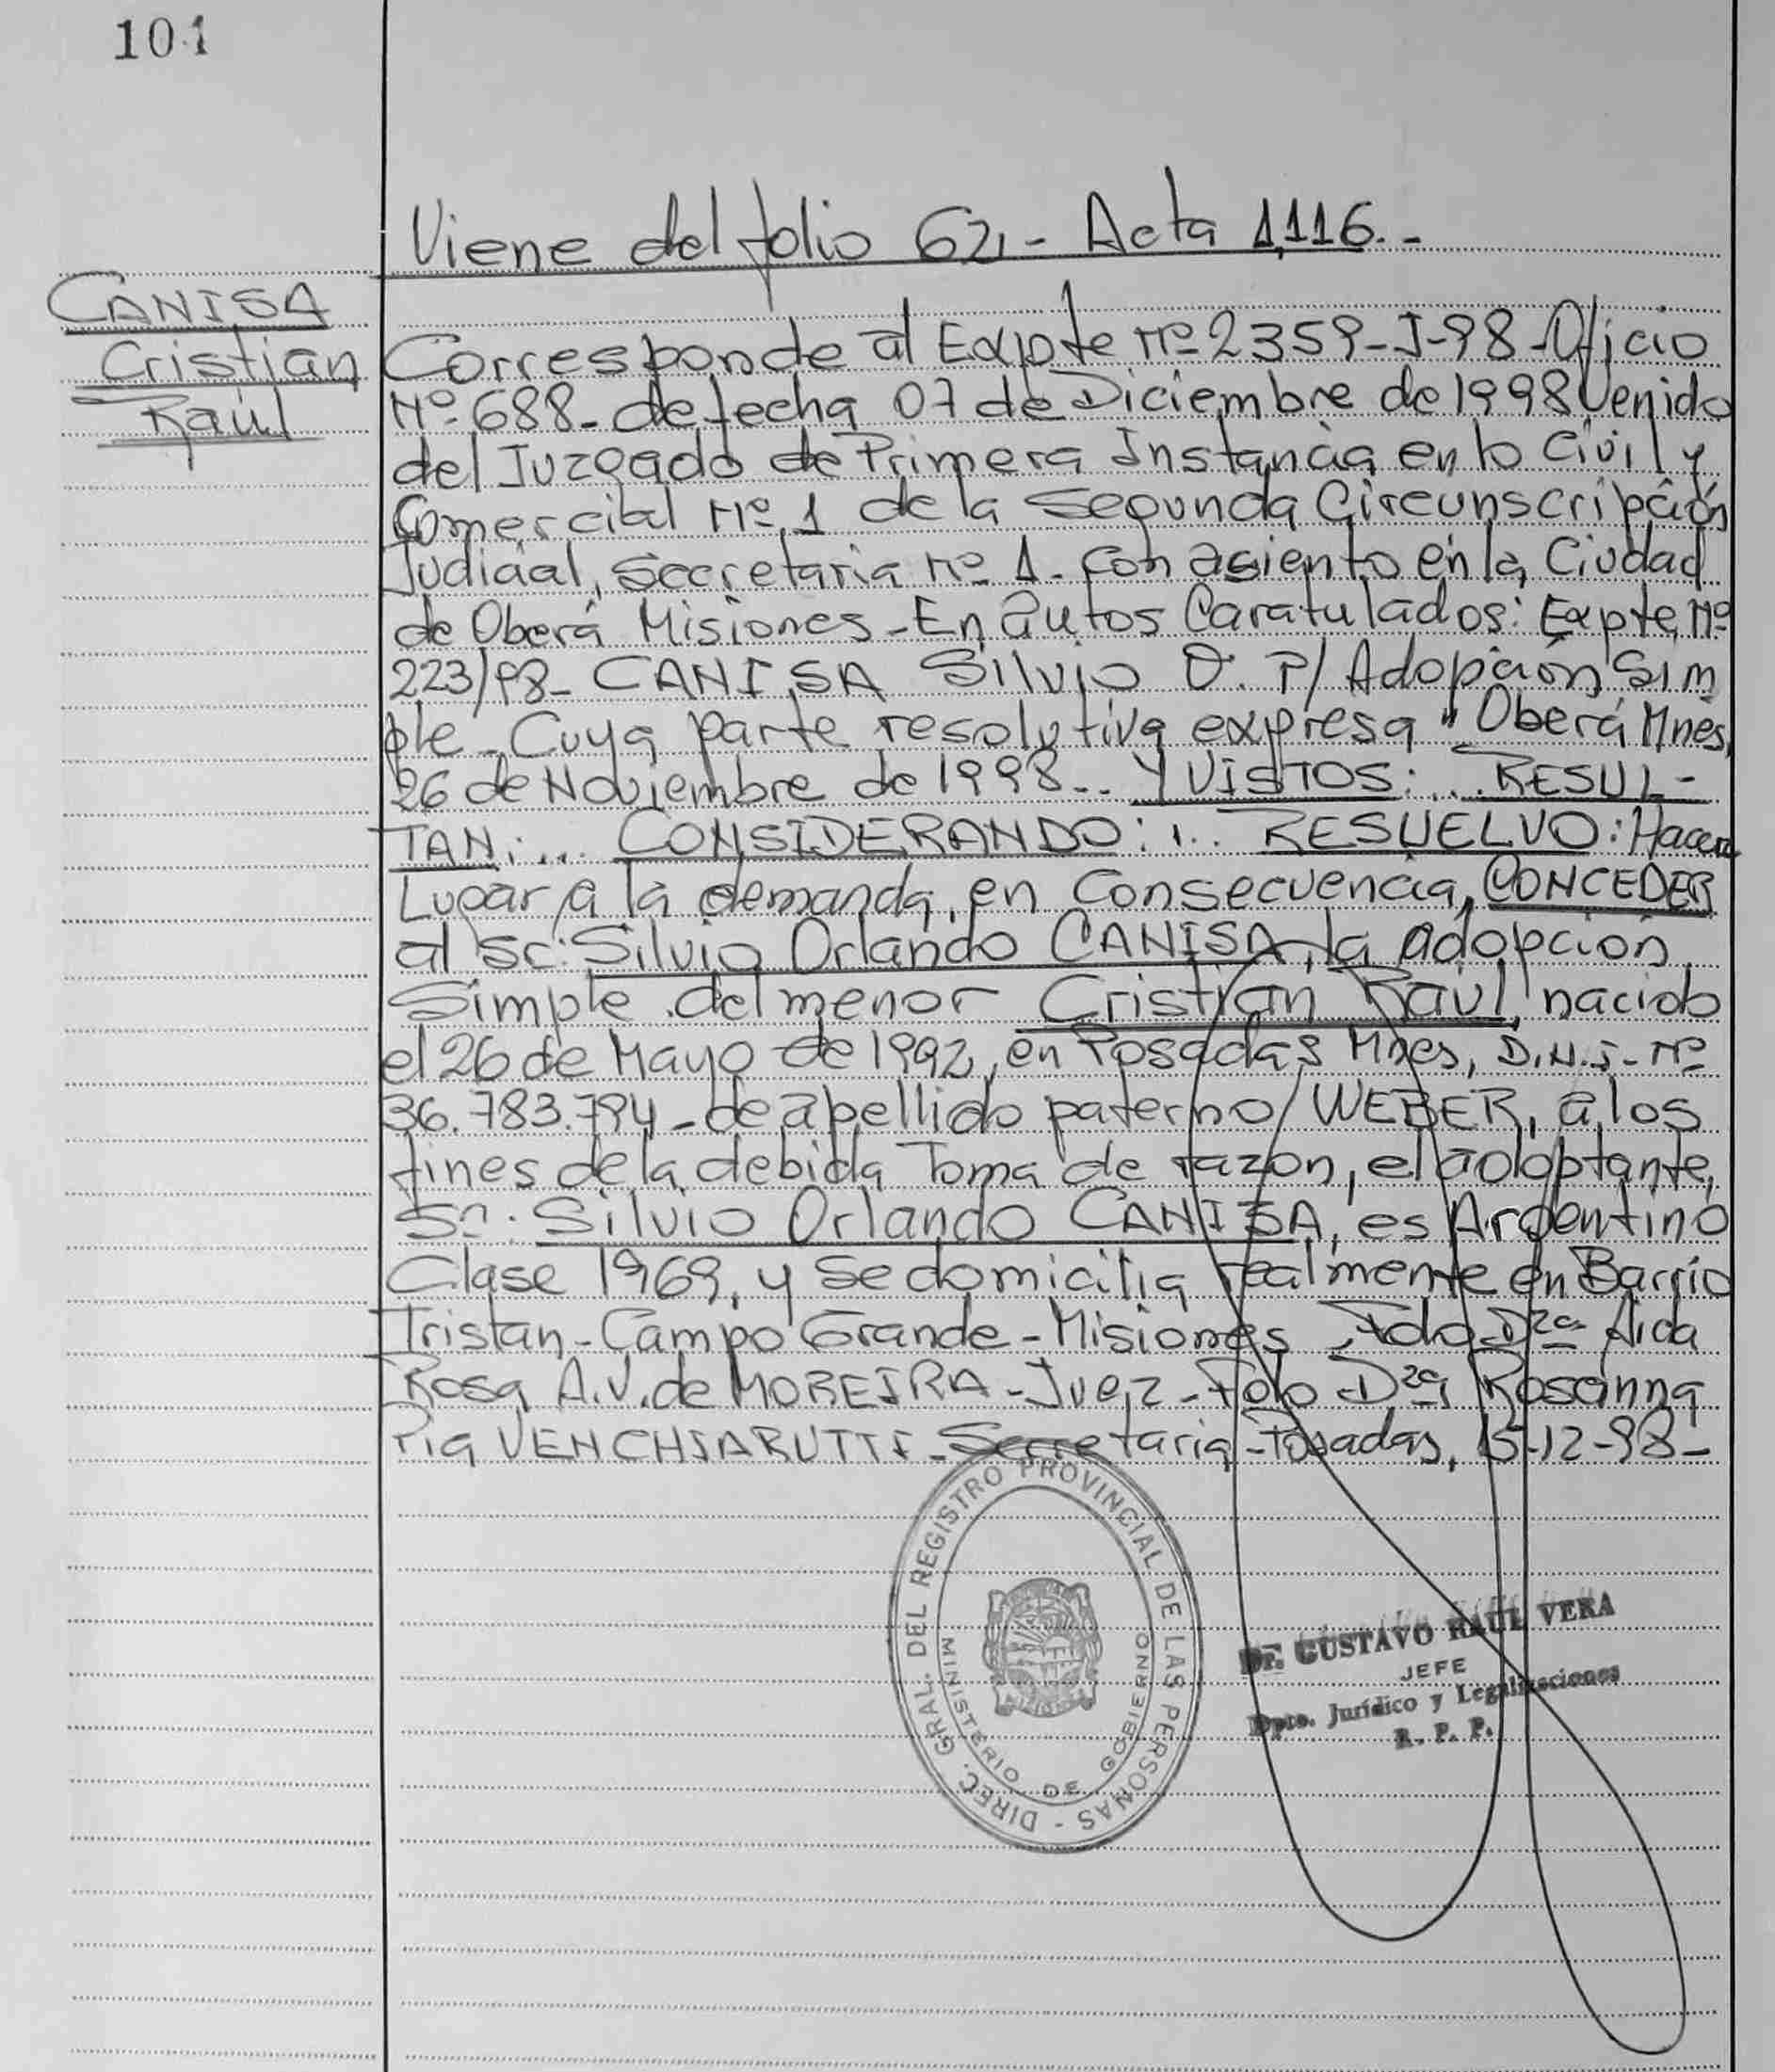 101
Viene del folio 62,- Acta 1,116.-
CANISA
Cristian
Raúl
Corresponde al Expte Nº 2359-I-98-Oficio
Nº 688- de fecha 07 de Diciembre de 1998 Venido
del Juzgado de Primera Instancia en lo Civil y
Comercial Nº 1 de la Segunda Circunscripción
Judicial, Secretaria Nº 1- con asiento en la Ciudad
de Oberá Misiones-En autos Caratulados: Expte Nº
223/98- CANISA Silvio O. P/ Adopción Sim
ple- Cuya parte resolutiva expresa " Oberá Mnes,
26 de Noviembre de 1998... Y VISTOS:... RESUL-
TAN:... CONSIDERANDO:... RESUELVO: Hacer
Lugar a la demanda, en Consecuencia, CONCEDER
al Sr: Silvio Orlando CANISA, la adopción
Simple del menor Cristian Raúl, nacido
el 26 de Mayo de 1992, en Posadas Mnes, D.N.I- Nº
36.783.794- de apellido paterno WEBER, a los
fines de la debida Toma de razón, el adoptante,
Sr: Silvio Orlando CANISA, es Argentino
Clase 1969, y se domicilia realmente en Barrio
Tristan-Campo Grande-Misiones Fdo Dra Aida
Rosa A.V. de MOREIRA-Juez-Fdo Dra Rosanna
Pia VENCHIARUTTI-Secretaria-Posadas, 15-12-98-
DIREC. GRAL. DEL REGISTRO PROVINCIAL DE LAS PERSONAS -
MINISTERIO DE GOBIERNO
Dr. GUSTAVO RAUL VERA
JEFE
Dpto. Jurídico y Legalizaciones
R. P. P.